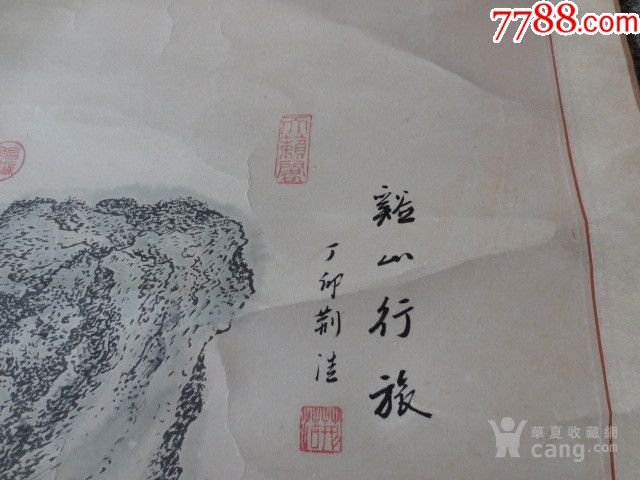 7788.com
天籟閣
谿山行旅
丁卯荆浩
華夏收藏網
cang.com